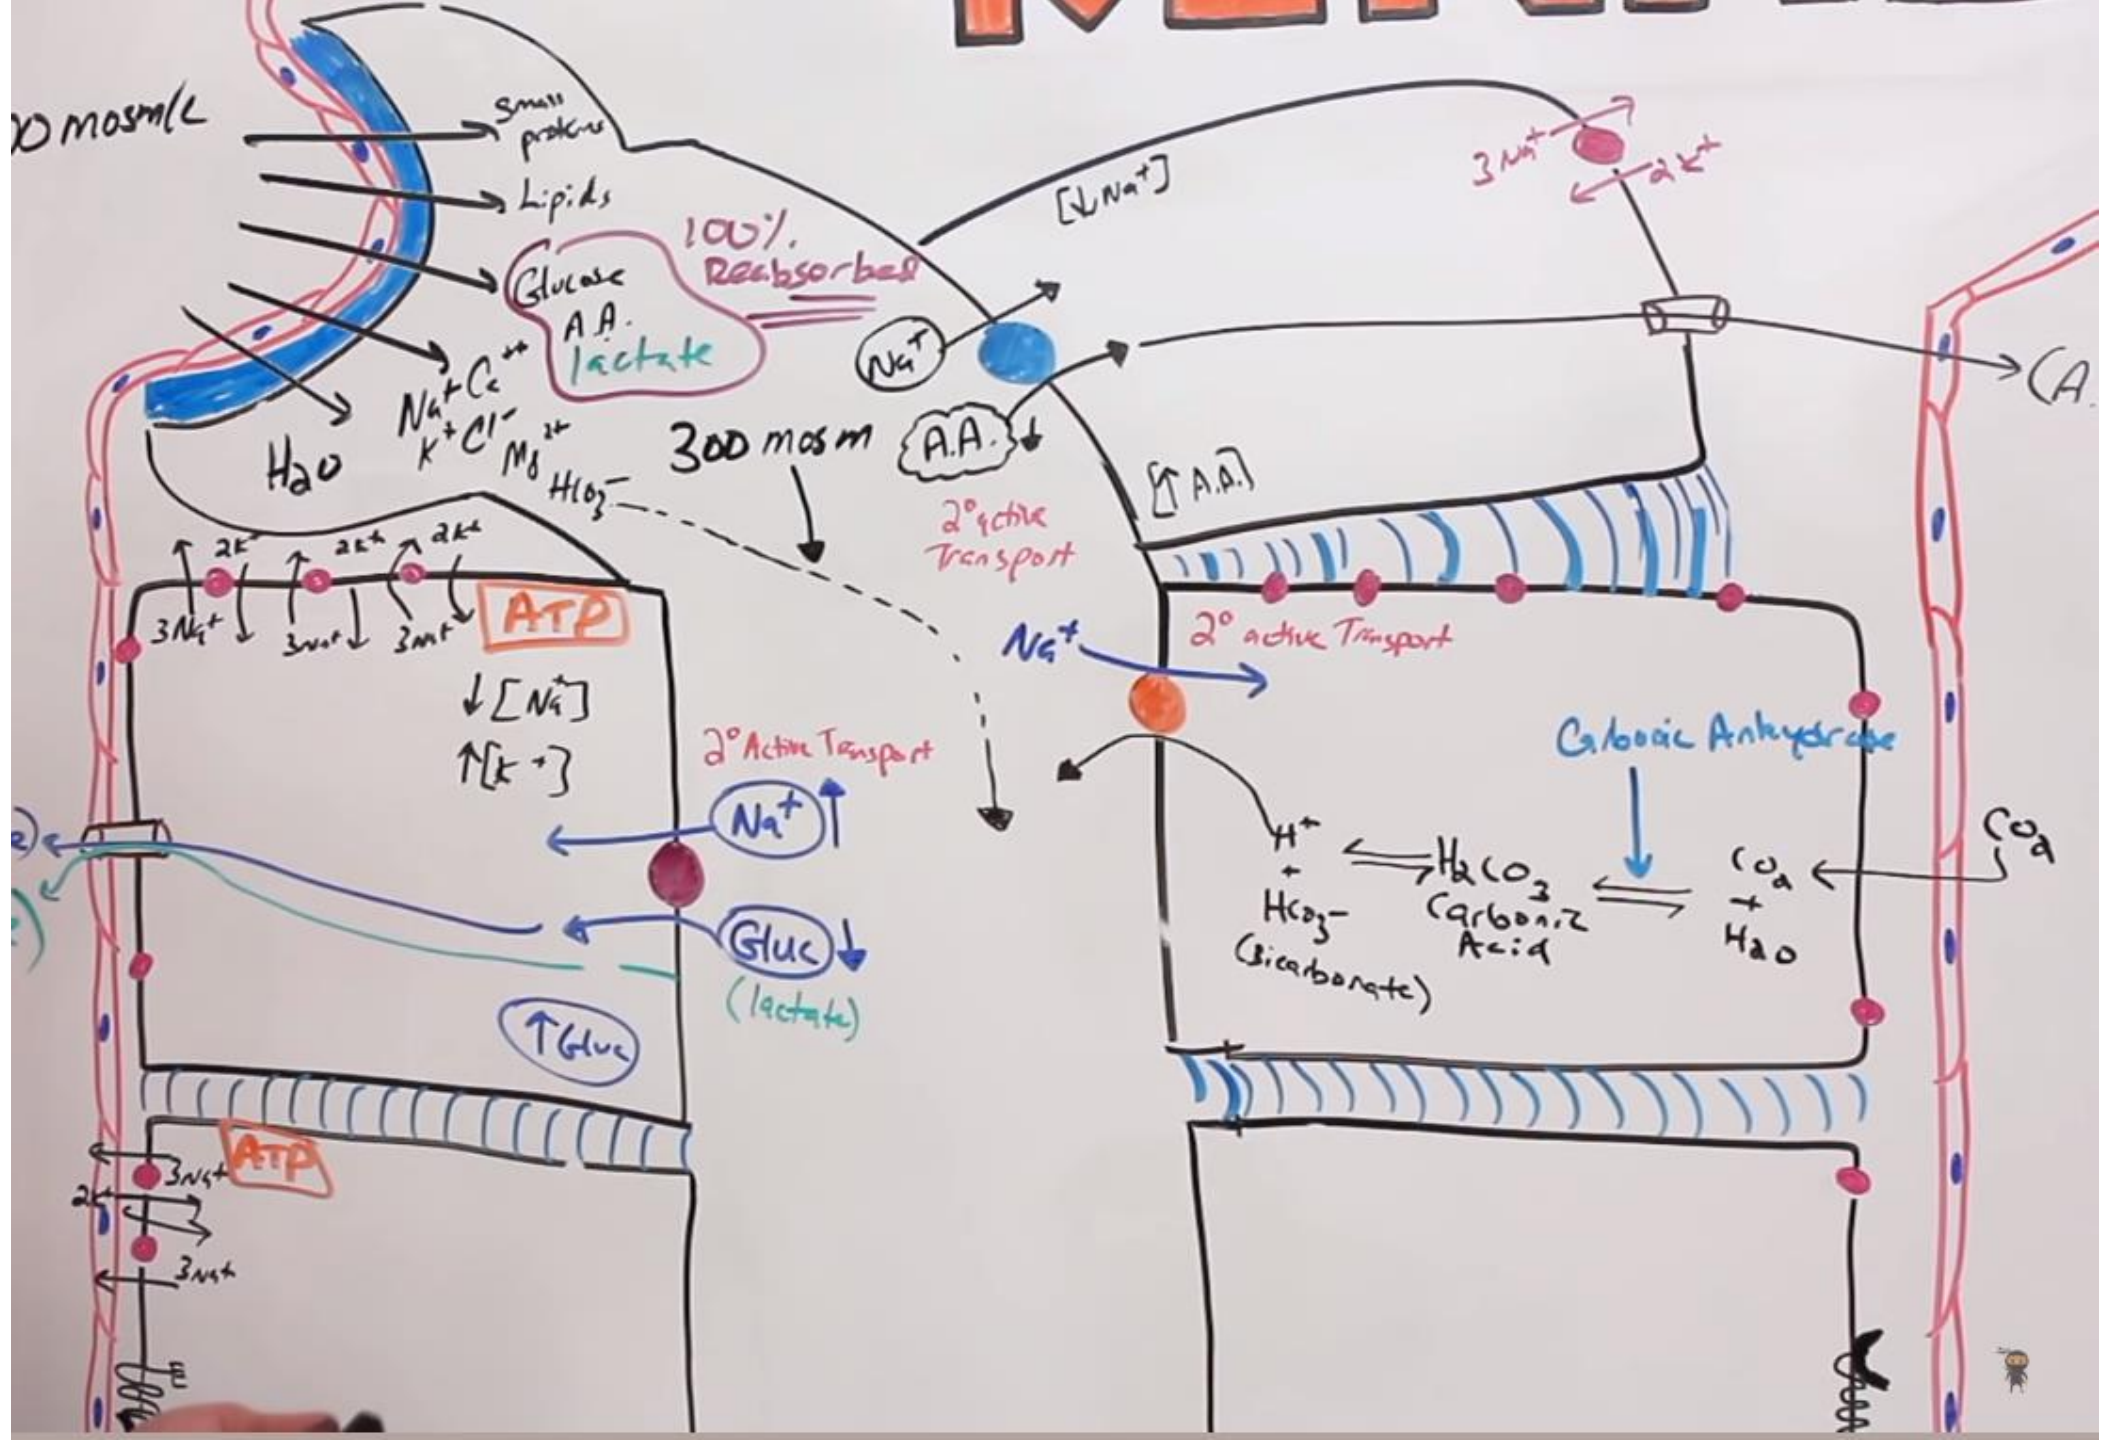 00 mosm/L
Small
proteins
Lipids
Glucose
A.A.
lactate
100%
Reabsorbed
Na+ Ca++
K+ Cl-
Mg2+
HCO3-
H2O
300 mosm
Na+
A.A. ↓
2° active
Transport
[↓Na+]
3Na+
2K+
[↑A.A.]
(A.
2K+
2K+
2K+
3Na+
3Na+
3Na+
ATP
↓[Na+]
↑[K+]
2° Active Transport
Na+ ↑
Gluc ↓
(lactate)
↑Gluc
Na+
2° active Transport
Carbonic Anhydrase
H+
+
HCO3-
(Bicarbonate)
H2CO3
Carbonic
Acid
CO2
+
H2O
CO2
ATP
3Na+
3Na+